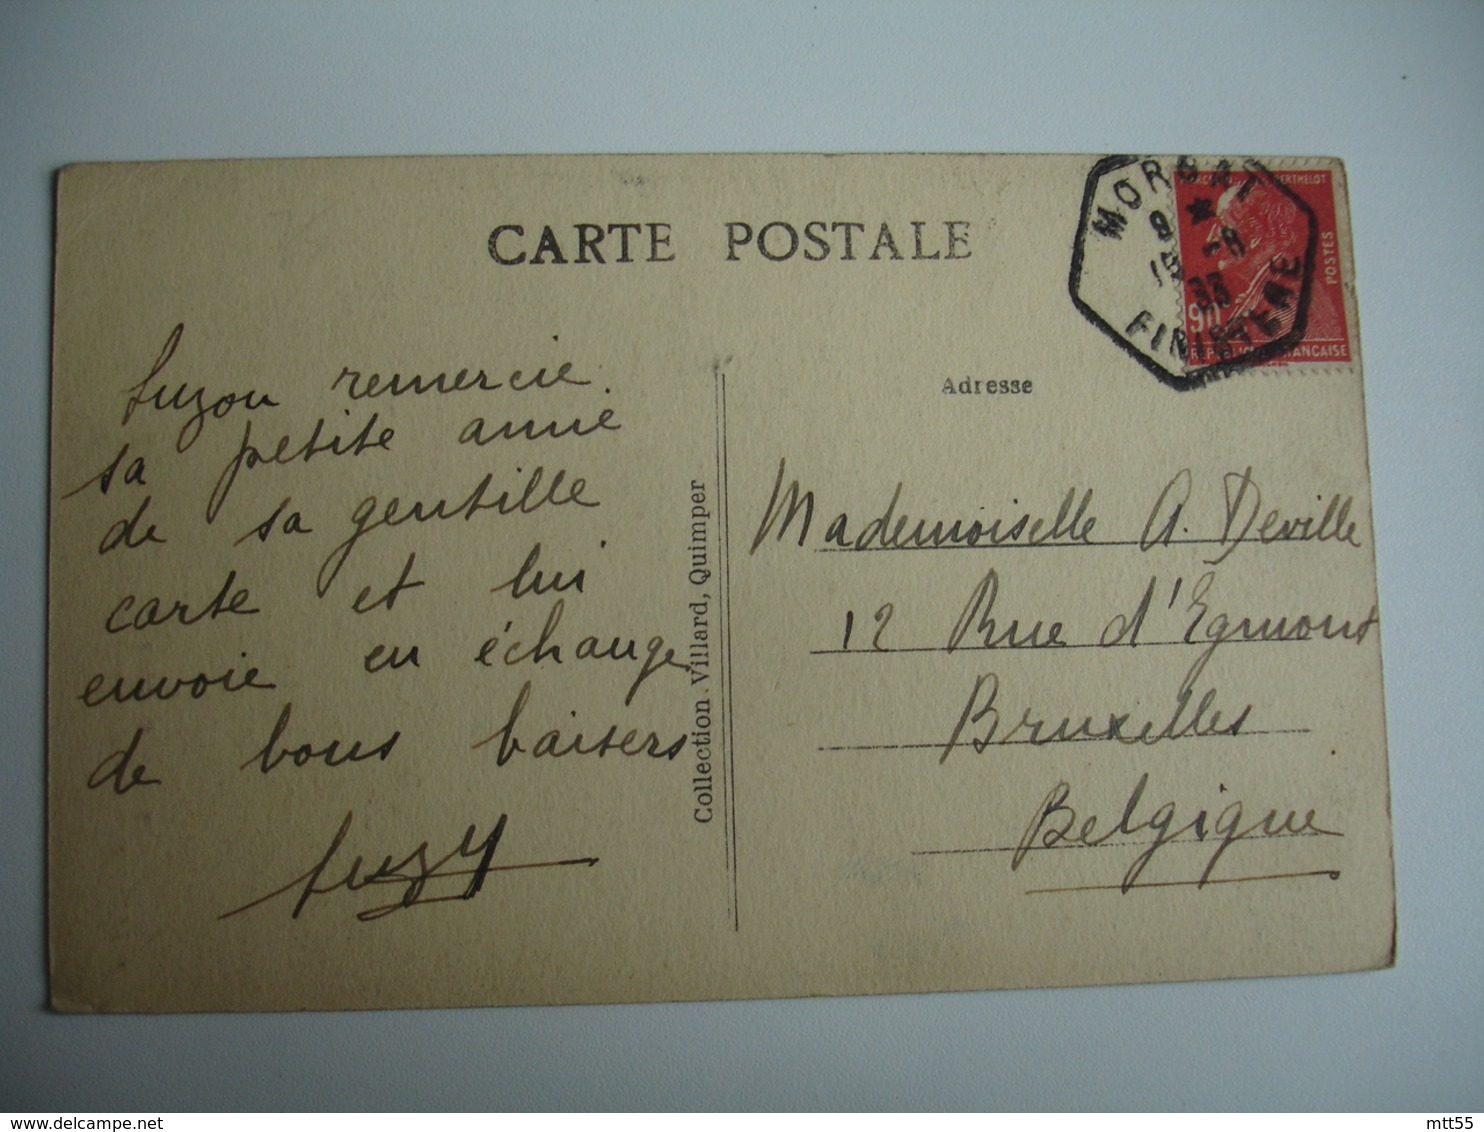 CARTE POSTALE
MORGAT
FINISTERE
BERTHELOT
POSTES
Suzon remercie
sa petite amie
de sa gentille
carte et lui
envoie en échange
de bons baisers
Suzy
Collection Villard, Quimper
Adresse
Mademoiselle A. Deville
12 Rue d'Egmont
Bruxelles
Belgique
mtt55